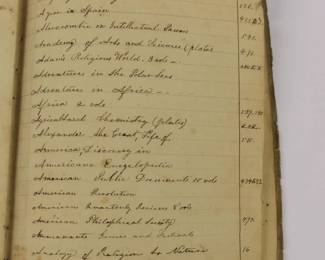 A year in Spain 150.
Abercrombie on Intellectual Powers
Academy of Arts and Sciences (plates 591.
Adam's Religious World. 3 vols 491.
Adventures in the Polar Seas
Adventures in Africa
Africa 2 vols. 189.190
Agricultural Chemistry (plates)
Alexander the Great, Life of
America, Discovery in
Americana Encyclopedia
American Public Documents 10 vols
American Revolution
American Quarterly Review 8 vols
American Philosophical Society
Amusements Games and Festivals
Analogy of Religion to Nature 16